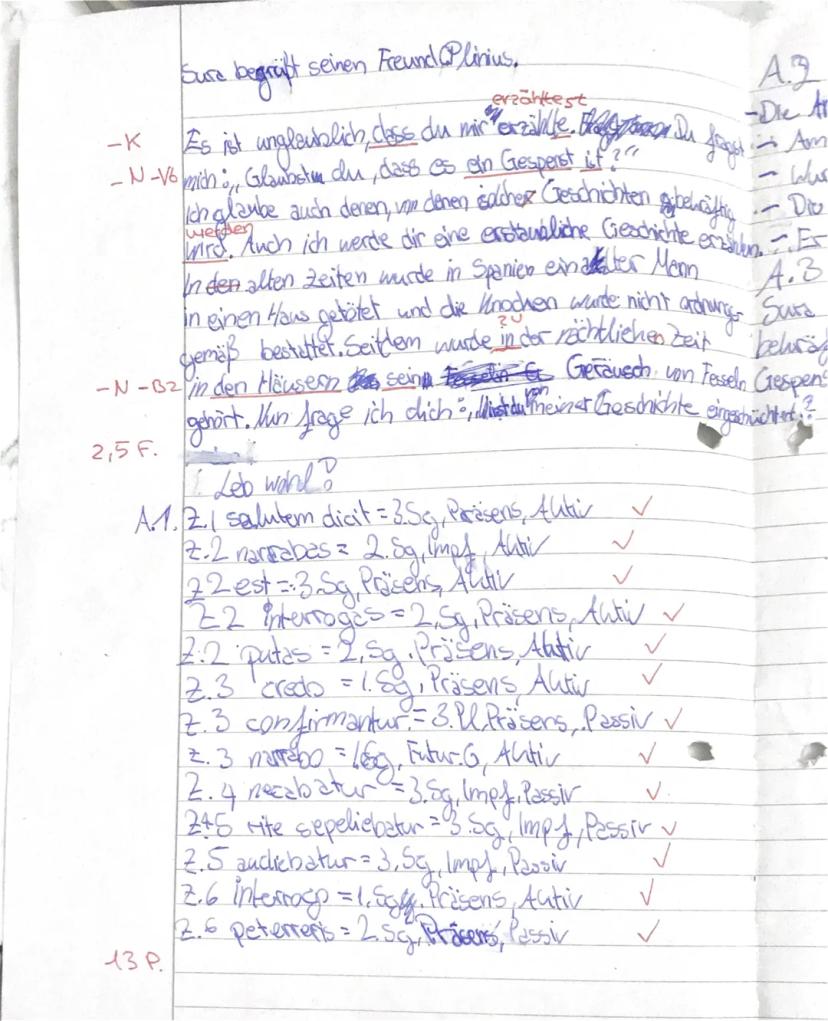 Sura begrüßt seinen Freund Plinius.
erzähltest
-K Es ist unglaublich, dass du mir erzählte. Du fragst
-N -Vb mich: „Glaubst du, dass es ein Gespenst ist?"
Ich glaube auch denen, von denen solche Geschichten bekräftig
werden
wird. Auch ich werde dir eine erstaunliche Geschichte erzählen.
In den alten Zeiten wurde in Spanien ein alter Mann
in einen Haus getötet und die Knochen wurde nicht ordnungs-
gemäß bestattet. Seitdem wurde in der nächtlichen Zeit
-N -BZ in den Häusern sein Geräusch von Fesseln
gehört. Nun frage ich dich: von meiner Geschichte eingeschüchtert?
2,5 F.
Leb wohl!
A.1. Z.1 salutem dicit = 3.Sg, Präsens, Aktiv ✓
Z.2 narrabas = 2.Sg, Impf, Aktiv ✓
Z2 est = 3.Sg, Präsens, Aktiv ✓
Z2 interrogas = 2.Sg, Präsens, Aktiv ✓
Z.2 putas = 2.Sg, Präsens, Aktiv ✓
Z.3 credo = 1.Sg, Präsens, Aktiv ✓
Z.3 confirmantur = 3.Pl. Präsens, Passiv ✓
Z.3 narrabo = 1.Sg, Futur, Aktiv ✓
Z.4 necabatur = 3.Sg, Impf, Passiv ✓
Z4+5 rite sepeliebatur = 3.Sg, Impf, Passiv ✓
Z.5 audiebatur = 3.Sg, Impf, Passiv ✓
Z.6 interrogo = 1.Sg, Präsens, Aktiv ✓
Z.6 = 2.Sg, Präsens, Passiv ✓
13 P.
- Die
- Am
- Die
- Er
A.3
Sura
Gespens